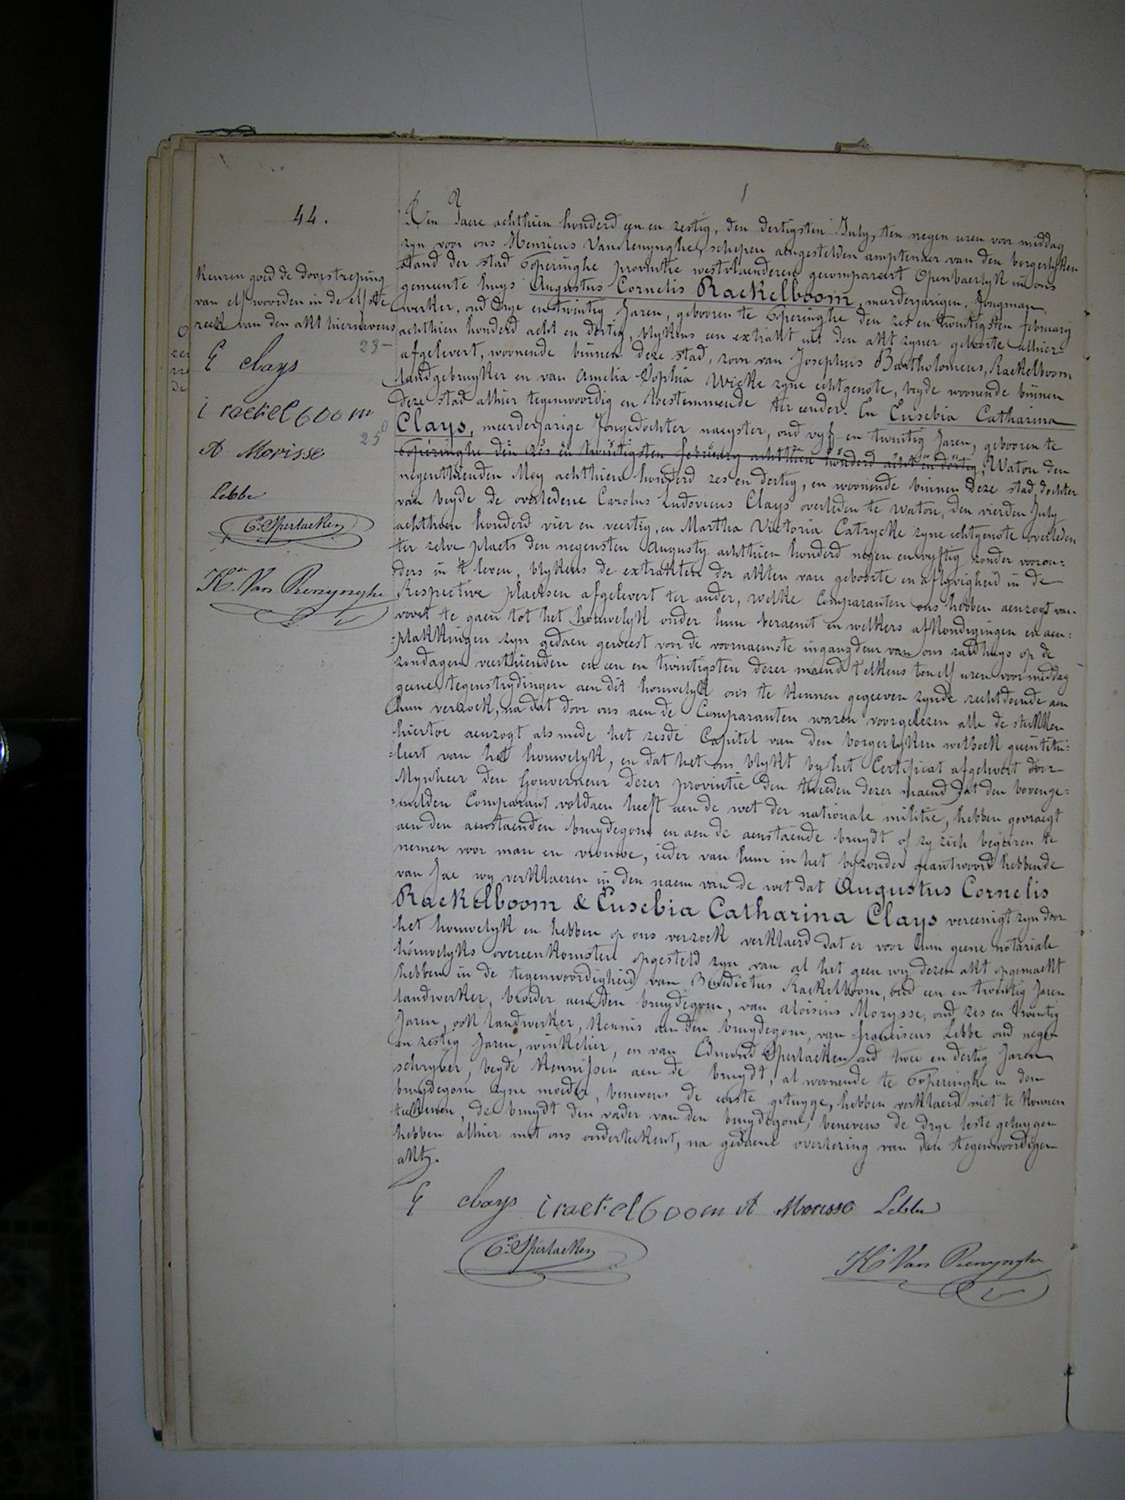 44.
Keuren goed de doorstreping
van elf woorden in de elfste
reek van den akt hiernevens
23-
E clays
i raekelboom
25
A Morisse
Lebbe
E. Sperlaeken
H. Van Renynghe
Den Jaere achthien honderd een en zestig, den dertigsten July, ten negen uren voor middag
zyn voor ons Henricus Van Renynghe, schepen aengestelden amptenaer van den borgerlyken
stand der stad Poperinghe provintie westvlaenderen gecompareert Openbaerlyk in ons
gemeente huys Augustus Cornelis Raekelboom, meerderjarigen, Jongman,
werker, oud drye en twintig Jaren, gebooren te Poperinghe den zes en twintigsten february
achthien honderd acht en dertig, blykens een extrakt uit den akt zyner geboorte alhier
afgelevert, woonende binnen deze stad, zoon van Josephus Bartholomeus Raekelboom
landgebruyker en van Amelia Sophia Wicke zyne echtgenote, beyde woonende binnen
deze stad alhier tegenwoordig en toestemmende ter eender. En Eusebia Catharina
Clays, meerderjarige Jongedochter naeyster, oud vyf en twintig Jaren, gebooren te
Poperinghe den zes en twintigsten february achthien honderd acht en dertig, Watou den
negenthienden Mey achthien honderd zes en dertig, en woonende binnen deze stad, dochter
van beyde de overledene Carolus Ludovicus Clays overleden te Watou, den vierden July
achthien honderd vier en veertig, en Martha Victoria Catrycke zyne echtgenote overleden
ter zelve plaets den negensten Augusty achthien honderd negen en vyftig zonder vooron-
ders in t leven, blykens de extrakten der akten van geboorte en aflyvigheid in de
Respective plaetsen afgelevert ter ander, welke Comparanten ons hebben aenzogt van
voort te gaen tot het houwelyk onder hun beraemt en welkers afkondigingen en aen-
plakkingen zyn gedaen geweest voor de voornaemste ingangdeur van ons raedhuys op de
zondagen veerthienden en een en twintigsten dezer maend t'elkens ten elf uren voormiddag
geene tegenstrydingen aen dit houwelyk ons te kennen gegeeven zynde rechtdoende aen
hun verzoek, na dat door ons aen de Comparanten waren voorgelezen alle de stukken
hiertoe aenzogt alsmede het zesde Capitel van den borgerlyken wetboek geintitu-
leert van het houwelyk, en dat het ons blykt by het Certificat afgelevert door
Mynheer den Gouverneur dezer provintie den tweeden dezer maend dat den bovenge-
melden Comparant voldaen heeft aen de wet der nationale militie, hebben gevraegt
aen den aenstaenden bruydegom en aen de aenstaende bruydt of zy zich begeiren te
nemen voor man en vrouwe, ieder van hun in het byzonder geantwoord hebbende
van Jae wy verklaeren in den naem van de wet dat Augustus Cornelis
Raekelboom & Eusebia Catharina Clays vereenigt zyn door
het houwelyk en hebben op ons verzoek verklaerd dat er voor hun geene notariale
houwelyks overeenkomsten opgesteld zyn van al het geen wy dezen akt opgemaekt
hebben in de tegenwoordigheid van Benedictus Raekelboom, oud een en twintig Jaren
landwerker, broeder aen den bruydegom, van Aloisius Morysse, oud zes en twintig
Jaren, ook landwerker, kennis aen den bruydegom, van franciscus Lebbe oud negen
en zestig Jaren, winkelier, en van Edmond Sperlaeken oud twee en dertig Jaren
schryver, beyde kennissen aen de bruydt, al woonende te Poperinghe en den
bruydegom zyne moeder, benevens de eerste getuyge, hebben verklaerd niet te konnen
teekenen, de bruydt den vader van den bruydegom, benevens de drye leste getuygen
hebben alhier met ons onderteekent, na gedaene overlezing van den tegenwoordigen
akt.
E clays i raekelboom A Morisse Lebbe
E. Sperlaeken
H. Van Renynghe